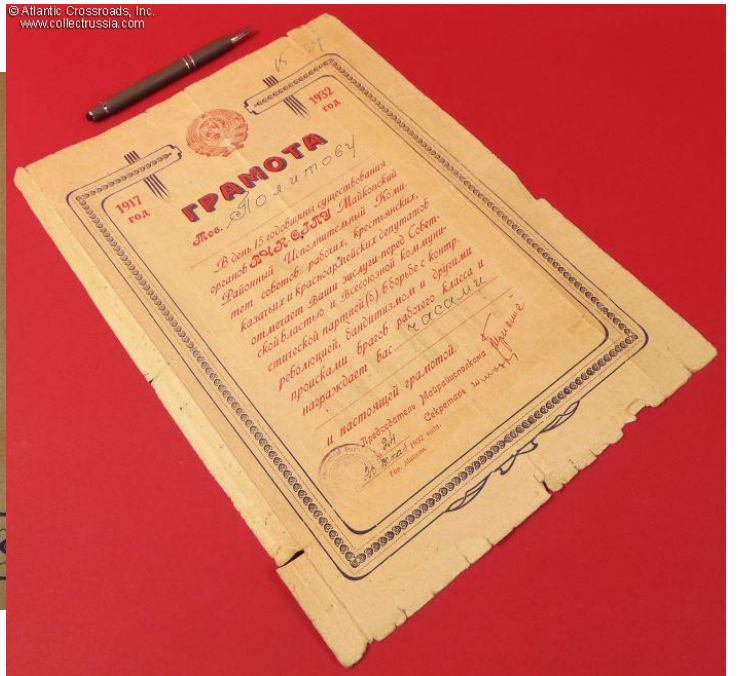 © Atlantic Crossroads, Inc.
www.collectrussia.com
1917 год
1932 год
ГРАМОТА
Тов. Политову
В день 15 годовщины существования
органов ВЧК-ОГПУ Майкопский
Районный Исполнительный Коми-
тет советов рабочих, крестьянских,
казачьих и красноармейских депутатов
отмечает Ваши заслуги перед Совет-
ской властью и Всесоюзной коммуни-
стической партией (б) в борьбе с контр.
революцией, бандитизмом и другими
происками врагов рабочего класса и
награждает вас часами
и настоящей грамотой.
Председатель Майрайисполкома
Секретарь
№ 24
1932 года.
Гор. Майкоп.